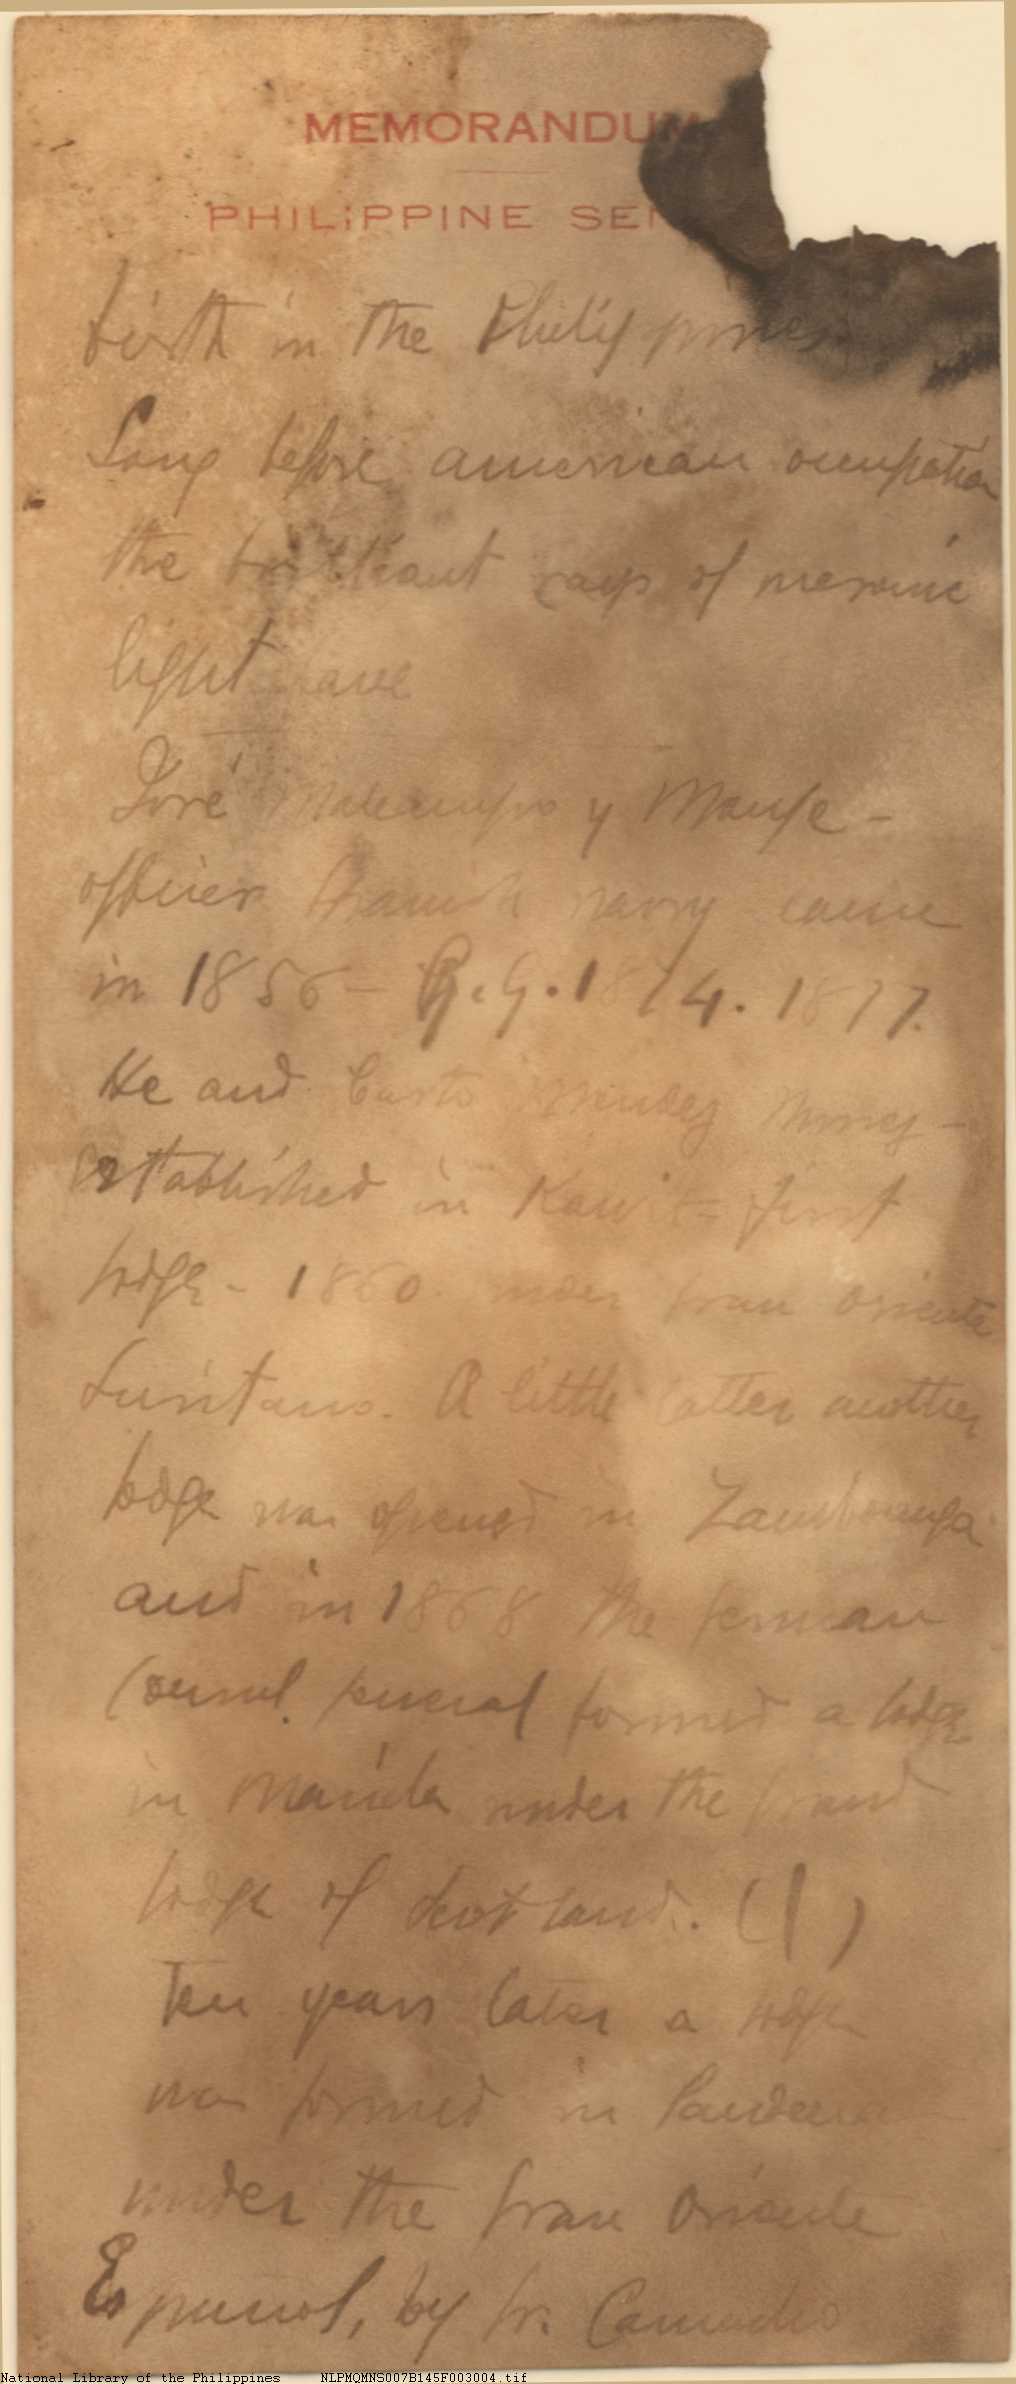 MEMORANDUM
PHILIPPINE SEN
birth in the Philippines.
Long before american occupation
the brilliant rays of masonic
light have
José Malcampo y Monge -
officer Spanish navy came
in 1856 - G.G. 1874. 1877.
He and Casto Mendez Nunez -
established in Kawit - first
lodge - 1860. under Gran Oriente
Lusitano. A little latter another
lodge was opened in Zamboanga
and in 1868 the German
Consul general formed a lodge
in Manila under the Grand
lodge of Scotland. (1)
Ten years later a lodge
was formed in
under the Gran Oriente
Espanol, by Gr.
National Library of the Philippines NLPMQMNS007B145F003004.tif